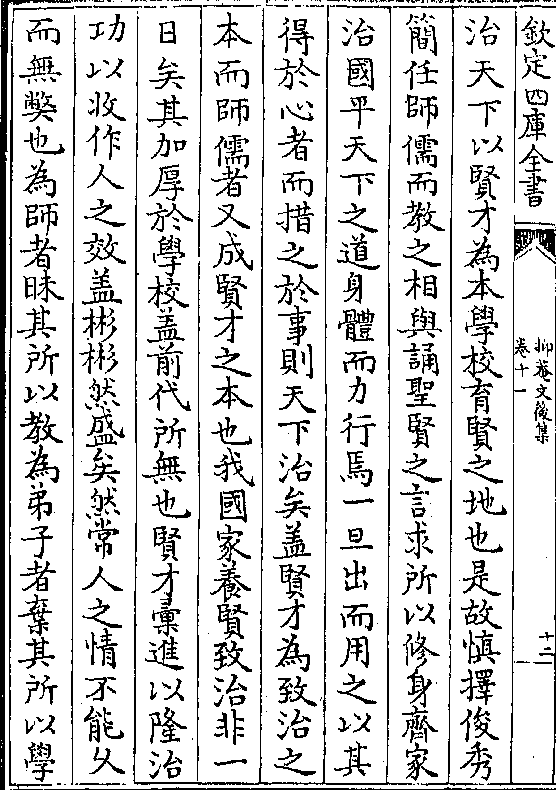 欽定四庫全書
抑菴文後集
卷十一
十二
治天下以賢才為本學校育賢之地也是故慎擇俊秀
簡任師儒而教之相與誦聖賢之言求所以修身齊家
治國平天下之道身體而力行焉一旦出而用之以其
得於心者而措之於事則天下治矣盖賢才為致治之
本而師儒者又成賢才之本也我國家養賢致治非一
日矣其加厚於學校盖前代所無也賢才彙進以隆治
功以收作人之效盖彬彬然盛矣然常人之情不能乆
而無弊也為師者昧其所以教為弟子者棄其所以學